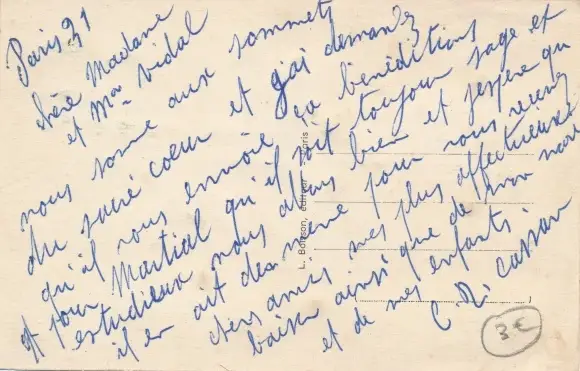 Paris 31
chère Madame
et Mr Vidal
nous somme aux sommets
du sacré coeur et j'ai demandez
qu'il vous envoie sa bénéditions
et pour Martial qu'il soit toujour sage et
estudieux nous allons bien et j'espère qu
il en ait de meme pour vous recevez
chers amies mes plus affectueuses
baiser ainsi que de mon mari
et de mes enfants.
C R. Cassan
L. Buisson, éditeur Paris
3€